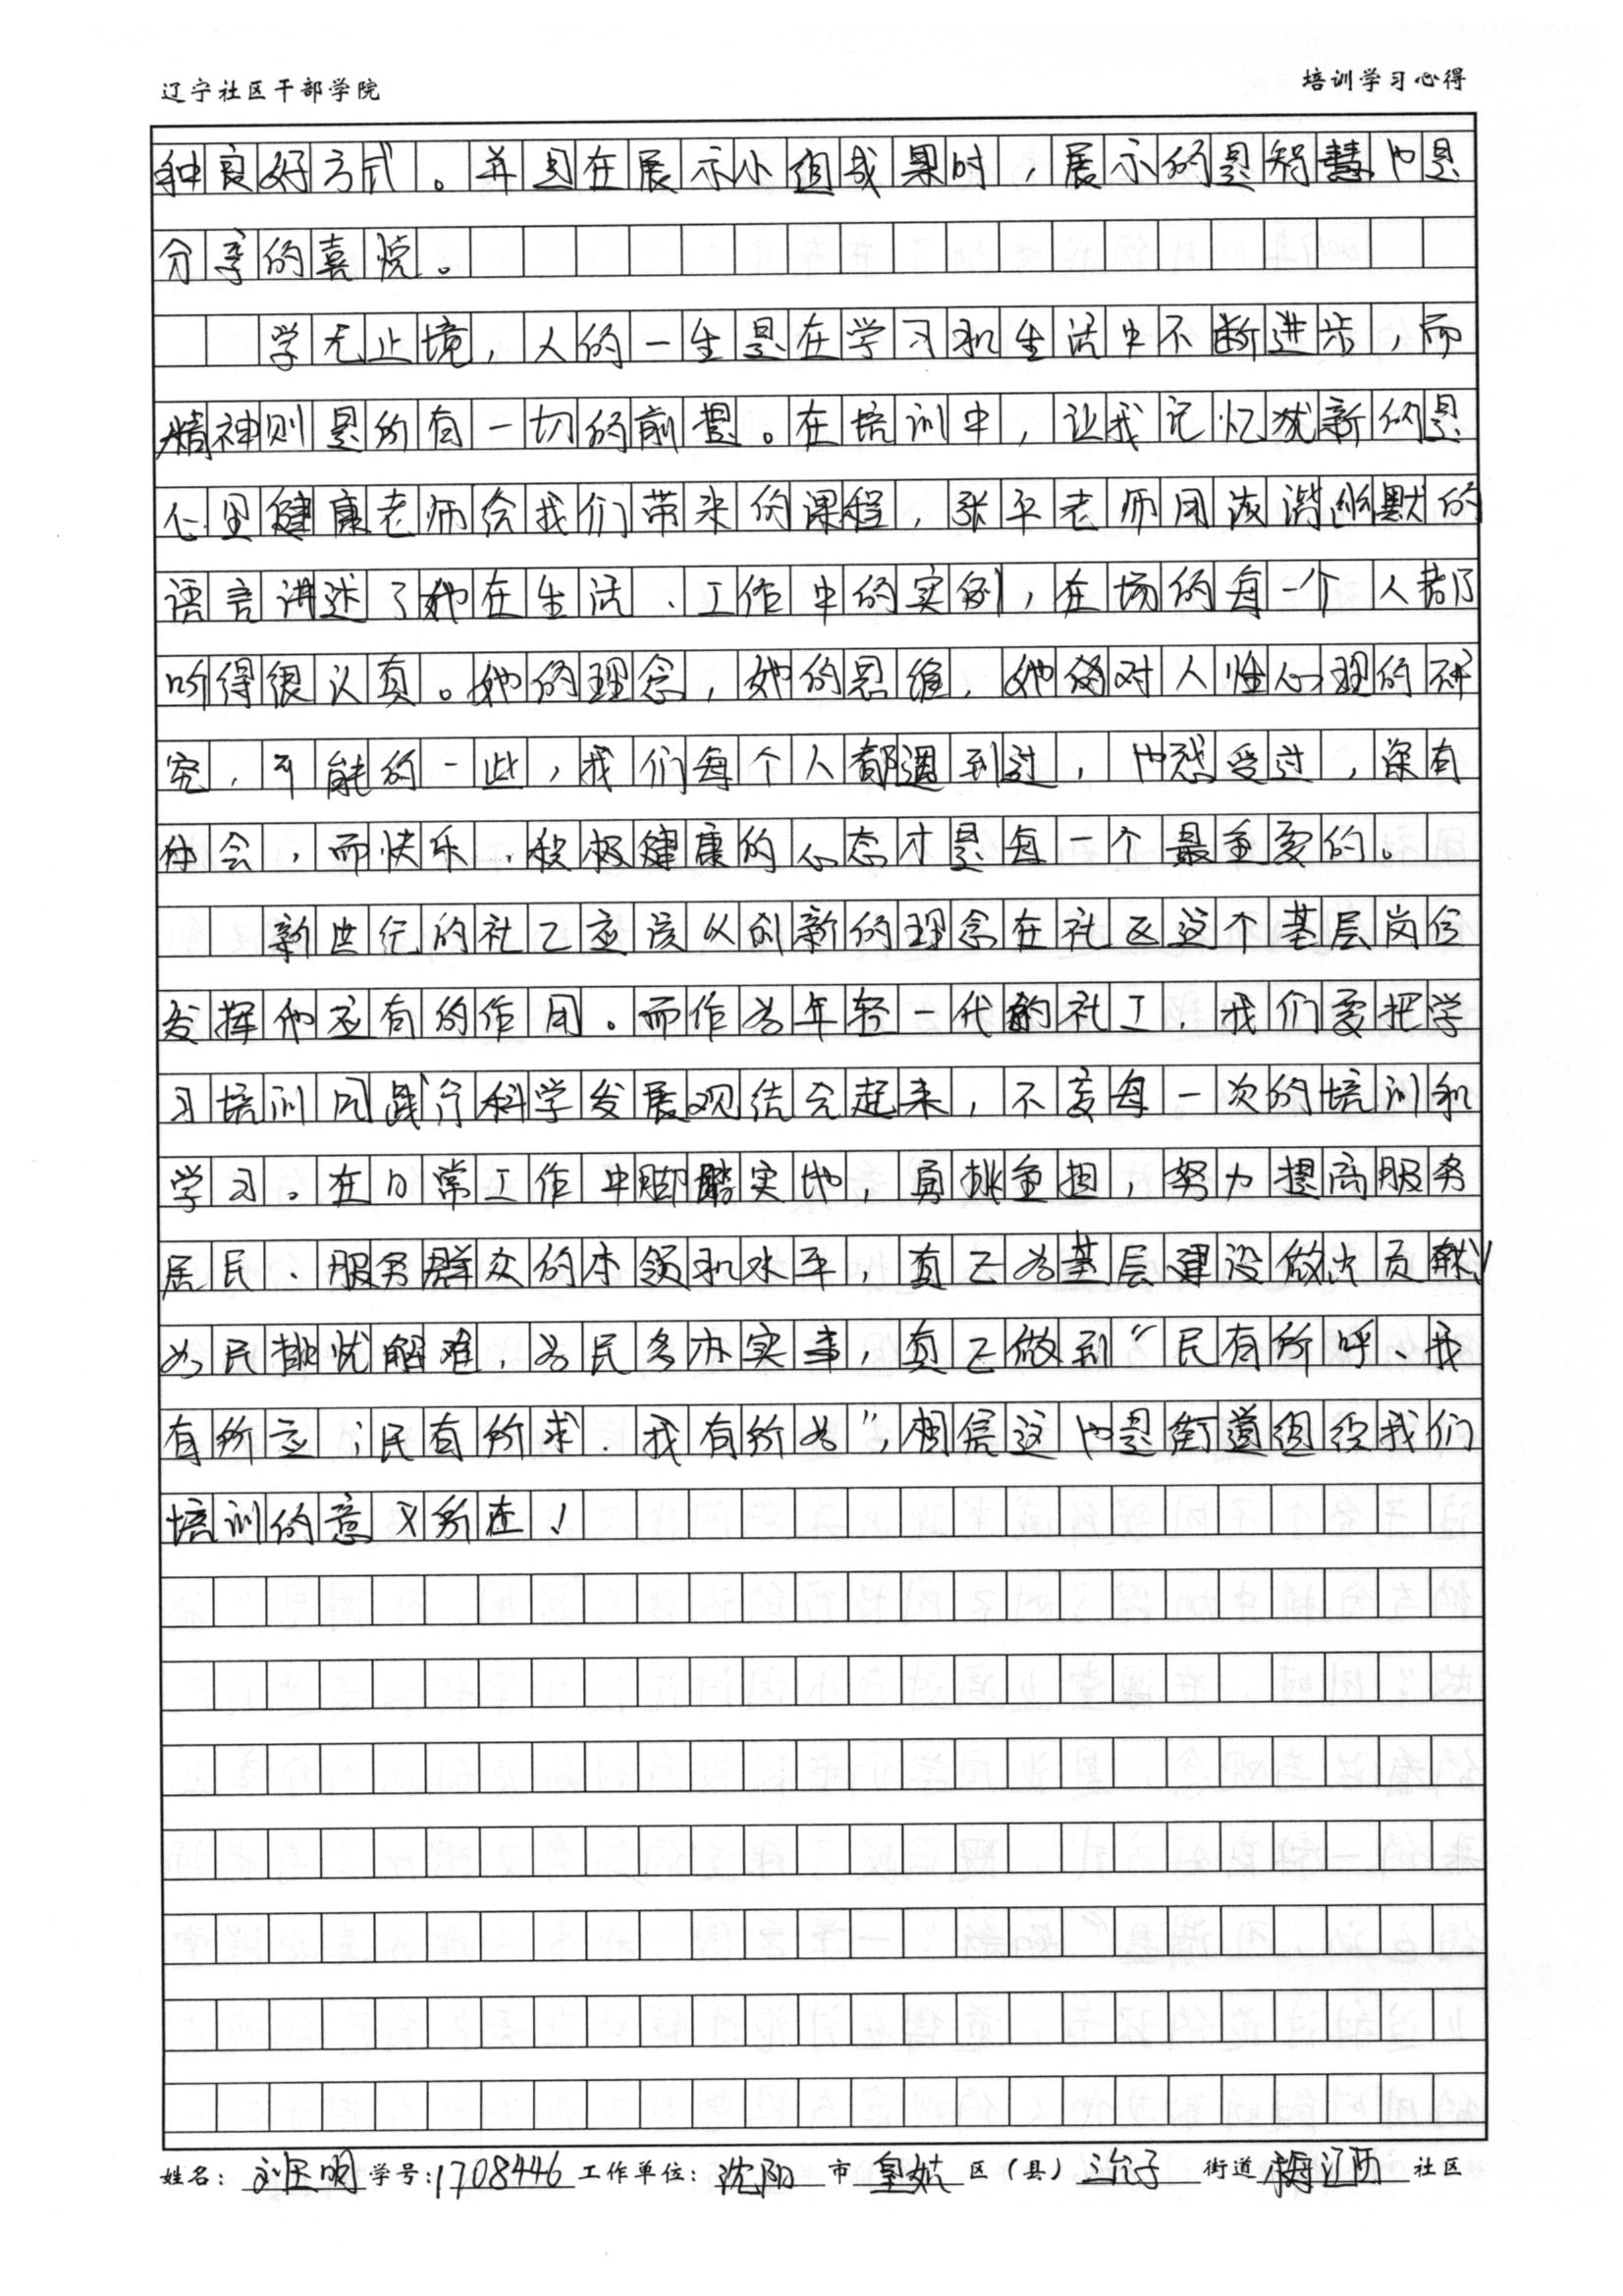 辽宁社区干部学院 培训学习心得
种良好方式。并且在展示小组成果时，展示的是智慧也是
分享的喜悦。
学无止境，人的一生是在学习和生活中不断进步，而
精神则是所有一切的前提。在培训中，让我记忆犹新的是
心里健康老师给我们带来的课程，张平老师用诙谐幽默的
语言讲述了她在生活、工作中的实例，在场的每一个人都
听得很认真。她的理念，她的思维，她的对人性心理的研
究，可能的一些，我们每个人都遇到过，也感受过，深有
体会，而快乐、积极健康的心态才是每一个最重要的。
新世纪的社工应该以创新的理念在社区这个基层岗位
发挥他应有的作用。而作为年轻一代的社工，我们要把学
习培训同践行科学发展观结合起来，不变每一次的培训和
学习。在日常工作中脚踏实地，勇挑重担，努力提高服务
居民、服务群众的本领和水平，真正为基层建设做出贡献
为民排忧解难，为民多办实事，真正做到“民有所呼、我
有所应；民有所求、我有所为”，相信这也是街道组织我们
培训的意义所在！
姓名：刘玉明 学号：1708446 工作单位：沈阳 市 皇姑 区（县） 三台子 街道 梅江西 社区